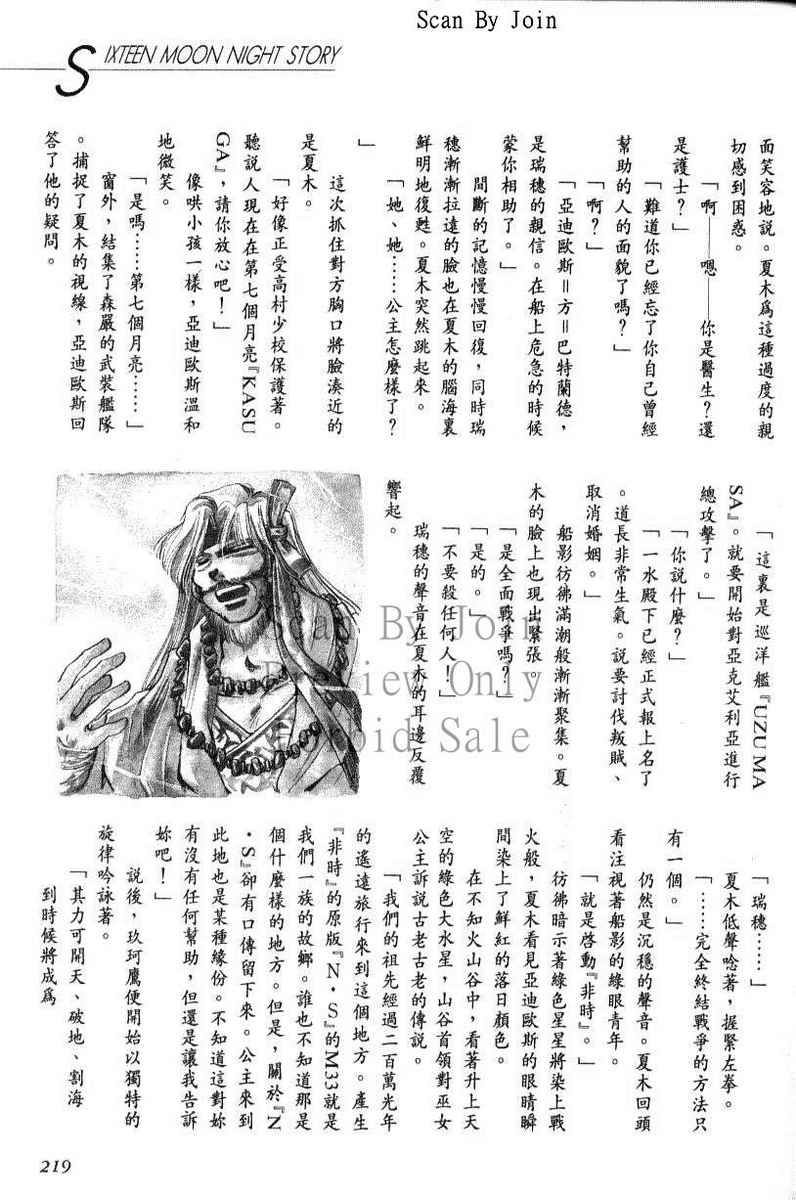 Scan By Join
SIXTEEN MOON NIGHT STORY
面笑容地說。夏木爲這種過度的親
切感到困惑。
「啊——嗯——你是醫生？還
是護士？」
「難道你已經忘了你自己曾經
幫助的人的面貌了嗎？」
「啊？」
「亞迪歐斯＝方＝巴特蘭德，
是瑞穗的親信。在船上危急的時候
蒙你相助了。」
間斷的記憶慢慢回復，同時瑞
穗漸漸拉遠的臉也在夏木的腦海裏
鮮明地復甦。夏木突然跳起來。
「她、她……公主怎麼樣了？
」
這次抓住對方胸口將臉湊近的
是夏木。
「好像正受高村少校保護著。
聽說人現在在第七個月亮『KASU
GA』，請你放心吧！」
像哄小孩一樣，亞迪歐斯溫和
地微笑。
「是嗎……第七個月亮……」
窗外，結集了森嚴的武裝艦隊
。捕捉了夏木的視線，亞迪歐斯回
答了他的疑問。
「這裏是巡洋艦『UZUMA
SA』。就要開始對亞克艾利亞進行
總攻擊了。」
「你說什麼？」
「一水殿下已經正式報上名了
。道長非常生氣。說要討伐叛賊、
取消婚姻。」
船影彷彿滿潮般漸漸聚集。夏
木的臉上也現出緊張。
「是全面戰爭嗎？」
「是的。」
「不要殺任何人！」
瑞穗的聲音在夏木的耳邊反覆
響起。
「瑞穗……」
夏木低聲唸著，握緊左拳。
「……完全終結戰爭的方法只
有一個。」
仍然是沉穩的聲音。夏木回頭
看注視著船影的綠眼青年。
「就是啓動『非時』。」
彷彿暗示著綠色星星將染上戰
火般，夏木看見亞迪歐斯的眼睛瞬
間染上了鮮紅的落日顏色。
在不知火山谷中，看著升上天
空的綠色大水星，山谷首領對巫女
公主訴說古老古老的傳說。
「我們的祖先經過二百萬光年
的遙遠旅行來到這個地方。產生
『非時』的原版『N・S』的M33就是
我們一族的故鄉。誰也不知道那是
個什麼樣的地方。但是，關於『N
・S』卻有口傳留下來。公主來到
此地也是某種緣份。不知道這對妳
有沒有任何幫助，但還是讓我告訴
妳吧！」
說後，玖珂鷹便開始以獨特的
旋律吟詠著。
「其力可開天、破地、割海
到時候將成爲
Scan By Join
Preview Only
Forbid Sale
219